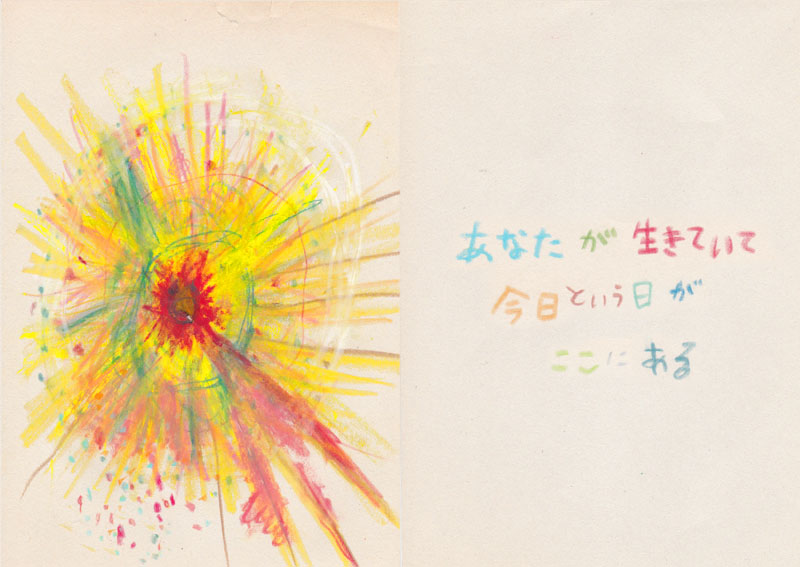 あなたが生きていて
今日という日が
ここにある